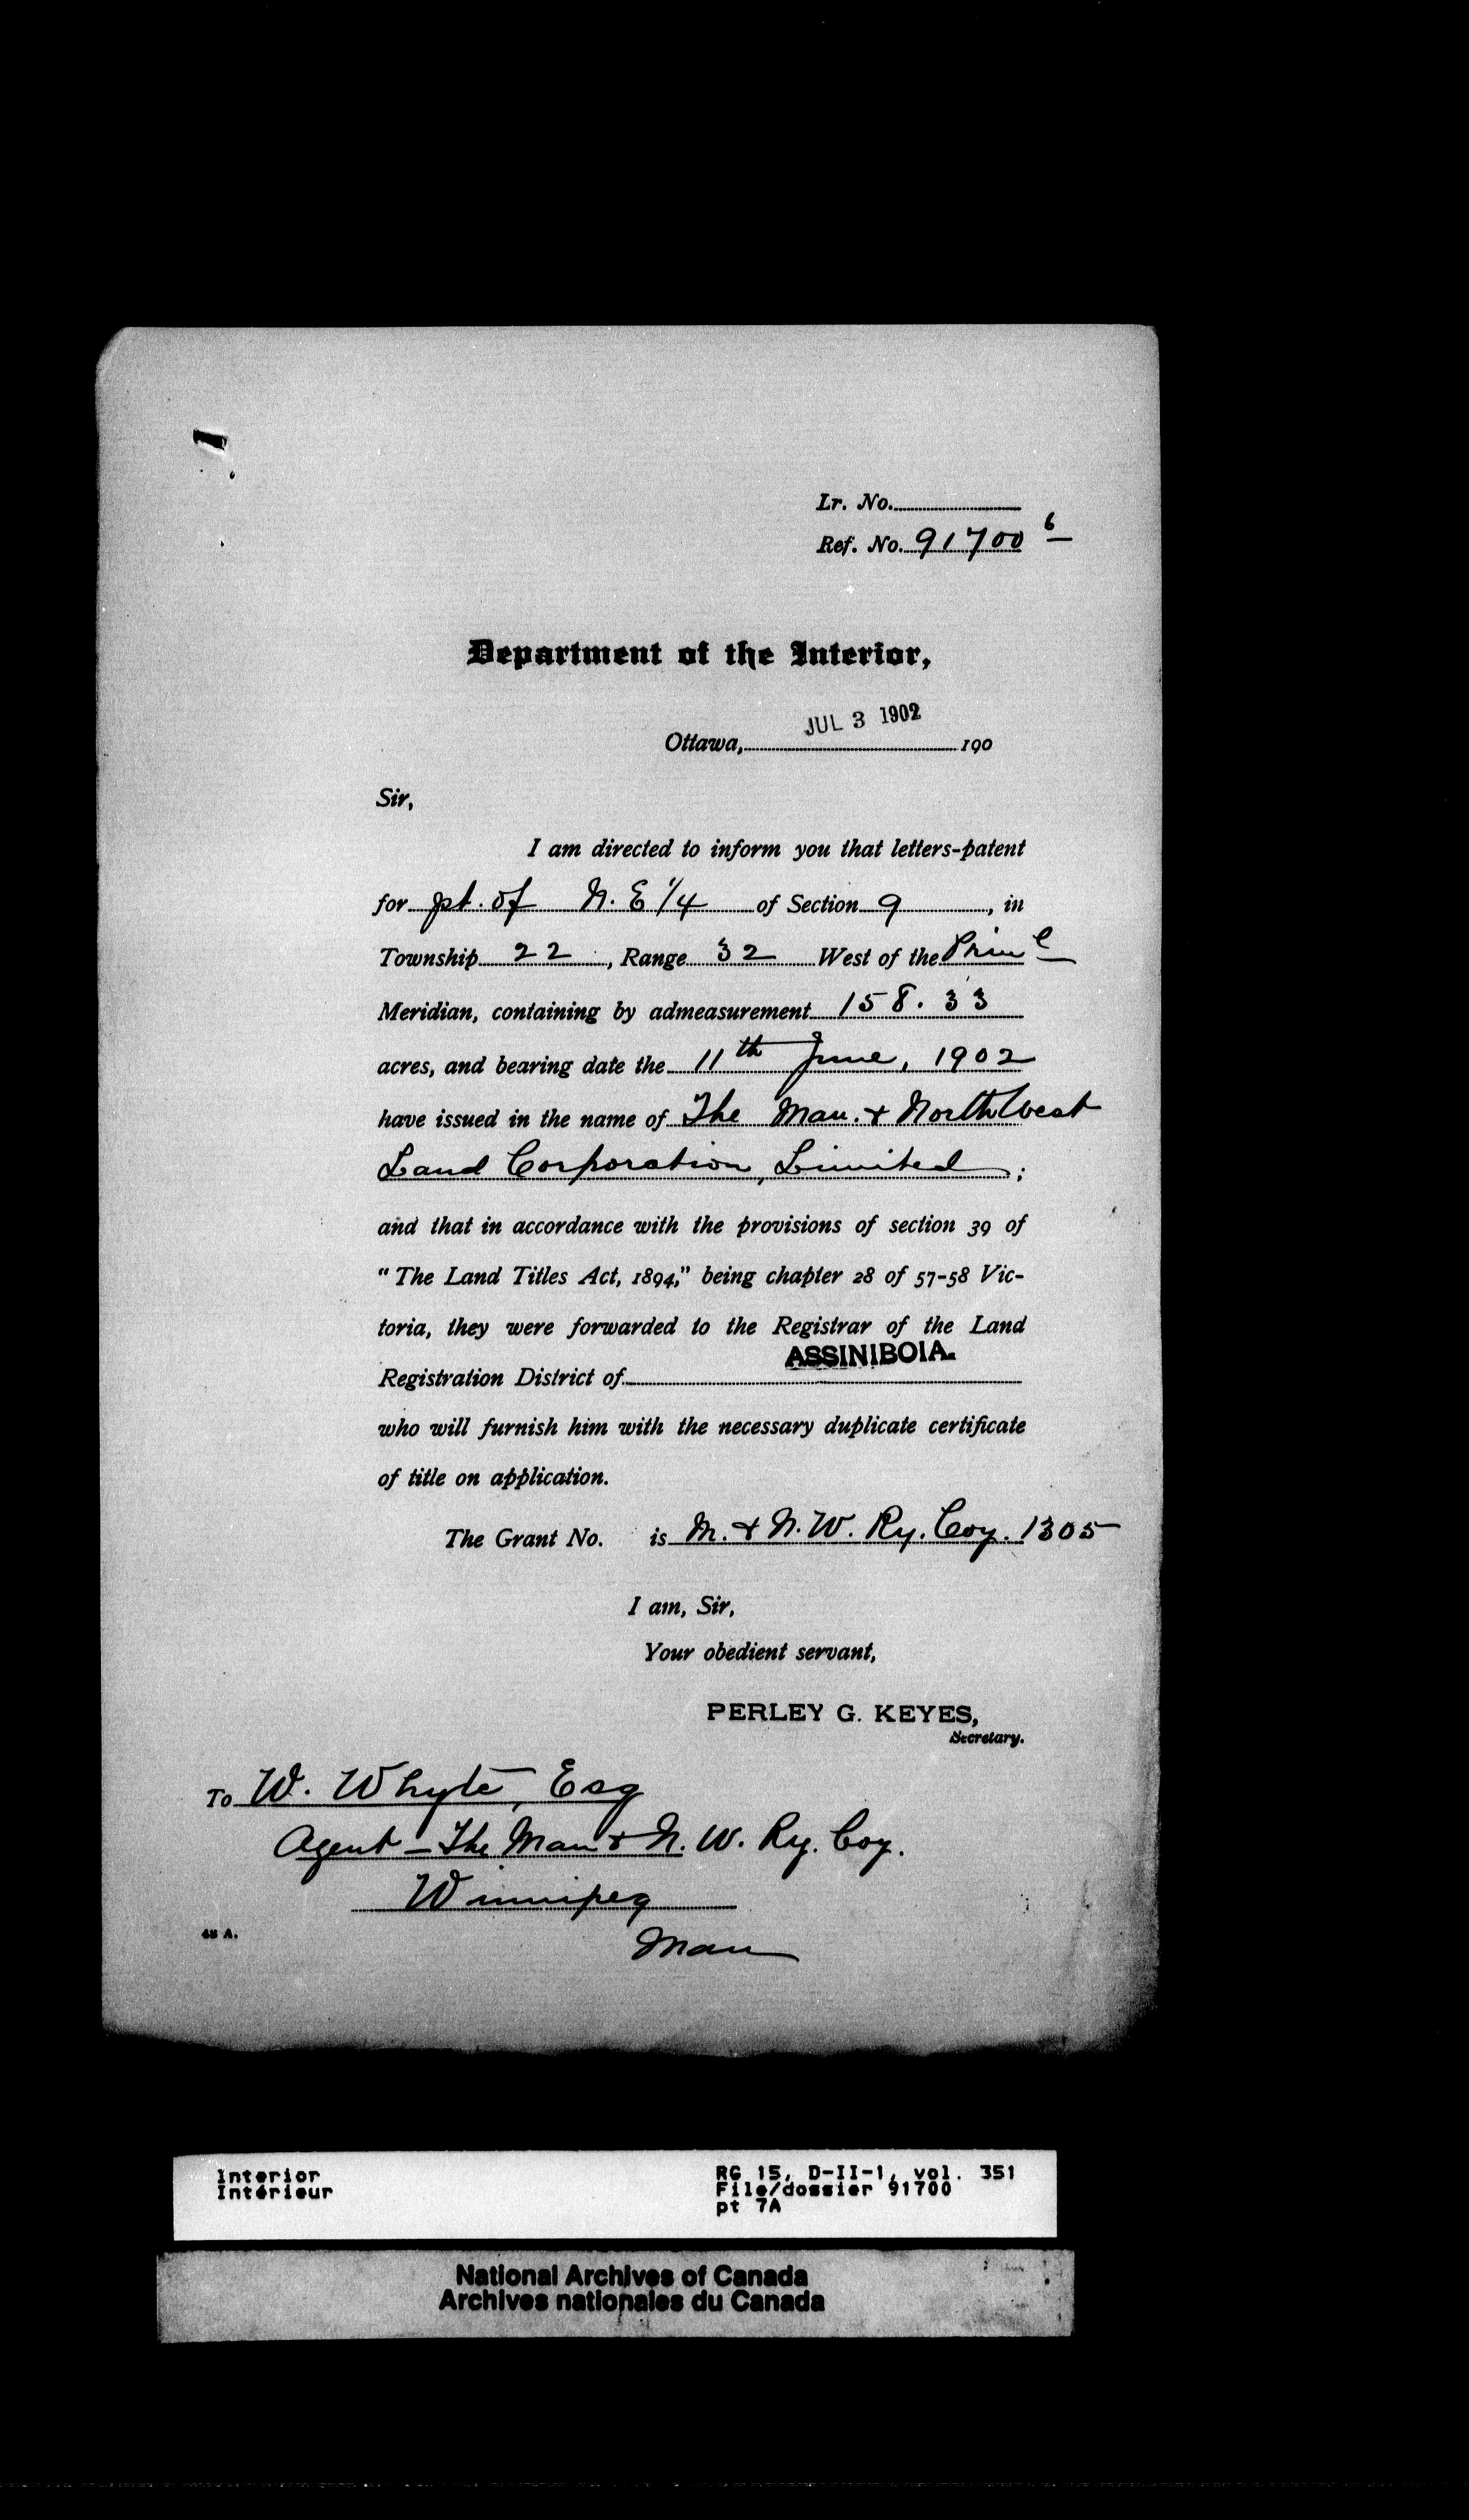 Lr. No.
Ref. No. 91700 6
Department of the Interior,
JUL 3 1902
Ottawa, 190
Sir,
I am directed to inform you that letters-patent
for pt. of N. E 1/4 of Section 9, in
Township 22, Range 32 West of the Prin l
Meridian, containing by admeasurement 158.33
acres, and bearing date the 11th June, 1902
have issued in the name of The Man. & North West
Land Corporation, Limited;
and that in accordance with the provisions of section 39 of
"The Land Titles Act, 1894," being chapter 28 of 57-58 Vic-
toria, they were forwarded to the Registrar of the Land
ASSINIBOIA.
Registration District of
who will furnish him with the necessary duplicate certificate
of title on application.
The Grant No. is M. & N. W. Ry. Coy. 1305
I am, Sir,
Your obedient servant,
PERLEY G. KEYES,
Secretary.
To W. Whyte, Esq
Agent - The Man & N. W. Ry. Coy.
Winnipeg
48 A.
Man
Interior RG 15, D-II-1, vol. 351
Intérieur File/dossier 91700
pt 7A
National Archives of Canada
Archives nationales du Canada